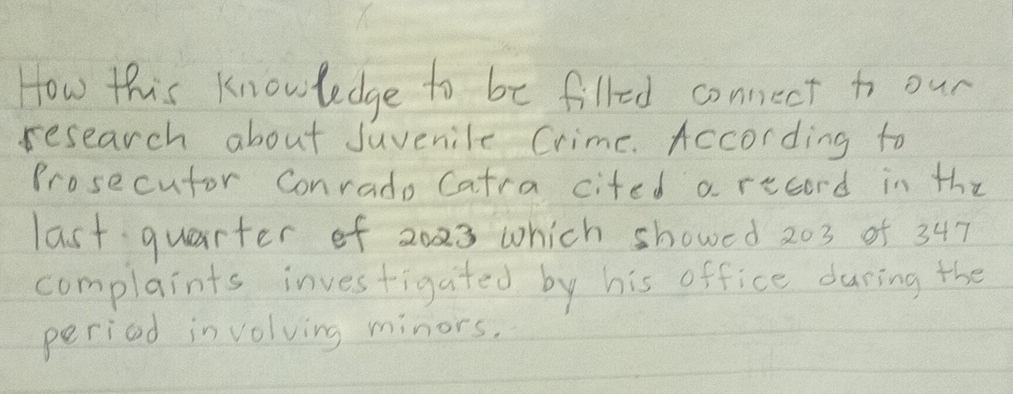 How this Knowledge to be filled connect to our
research about Juvenile Crime. According to
Prosecutor Conrado Catra cited a record in the
last quarter of 2023 which showed 203 of 347
complaints investigated by his office during the
period involving minors.